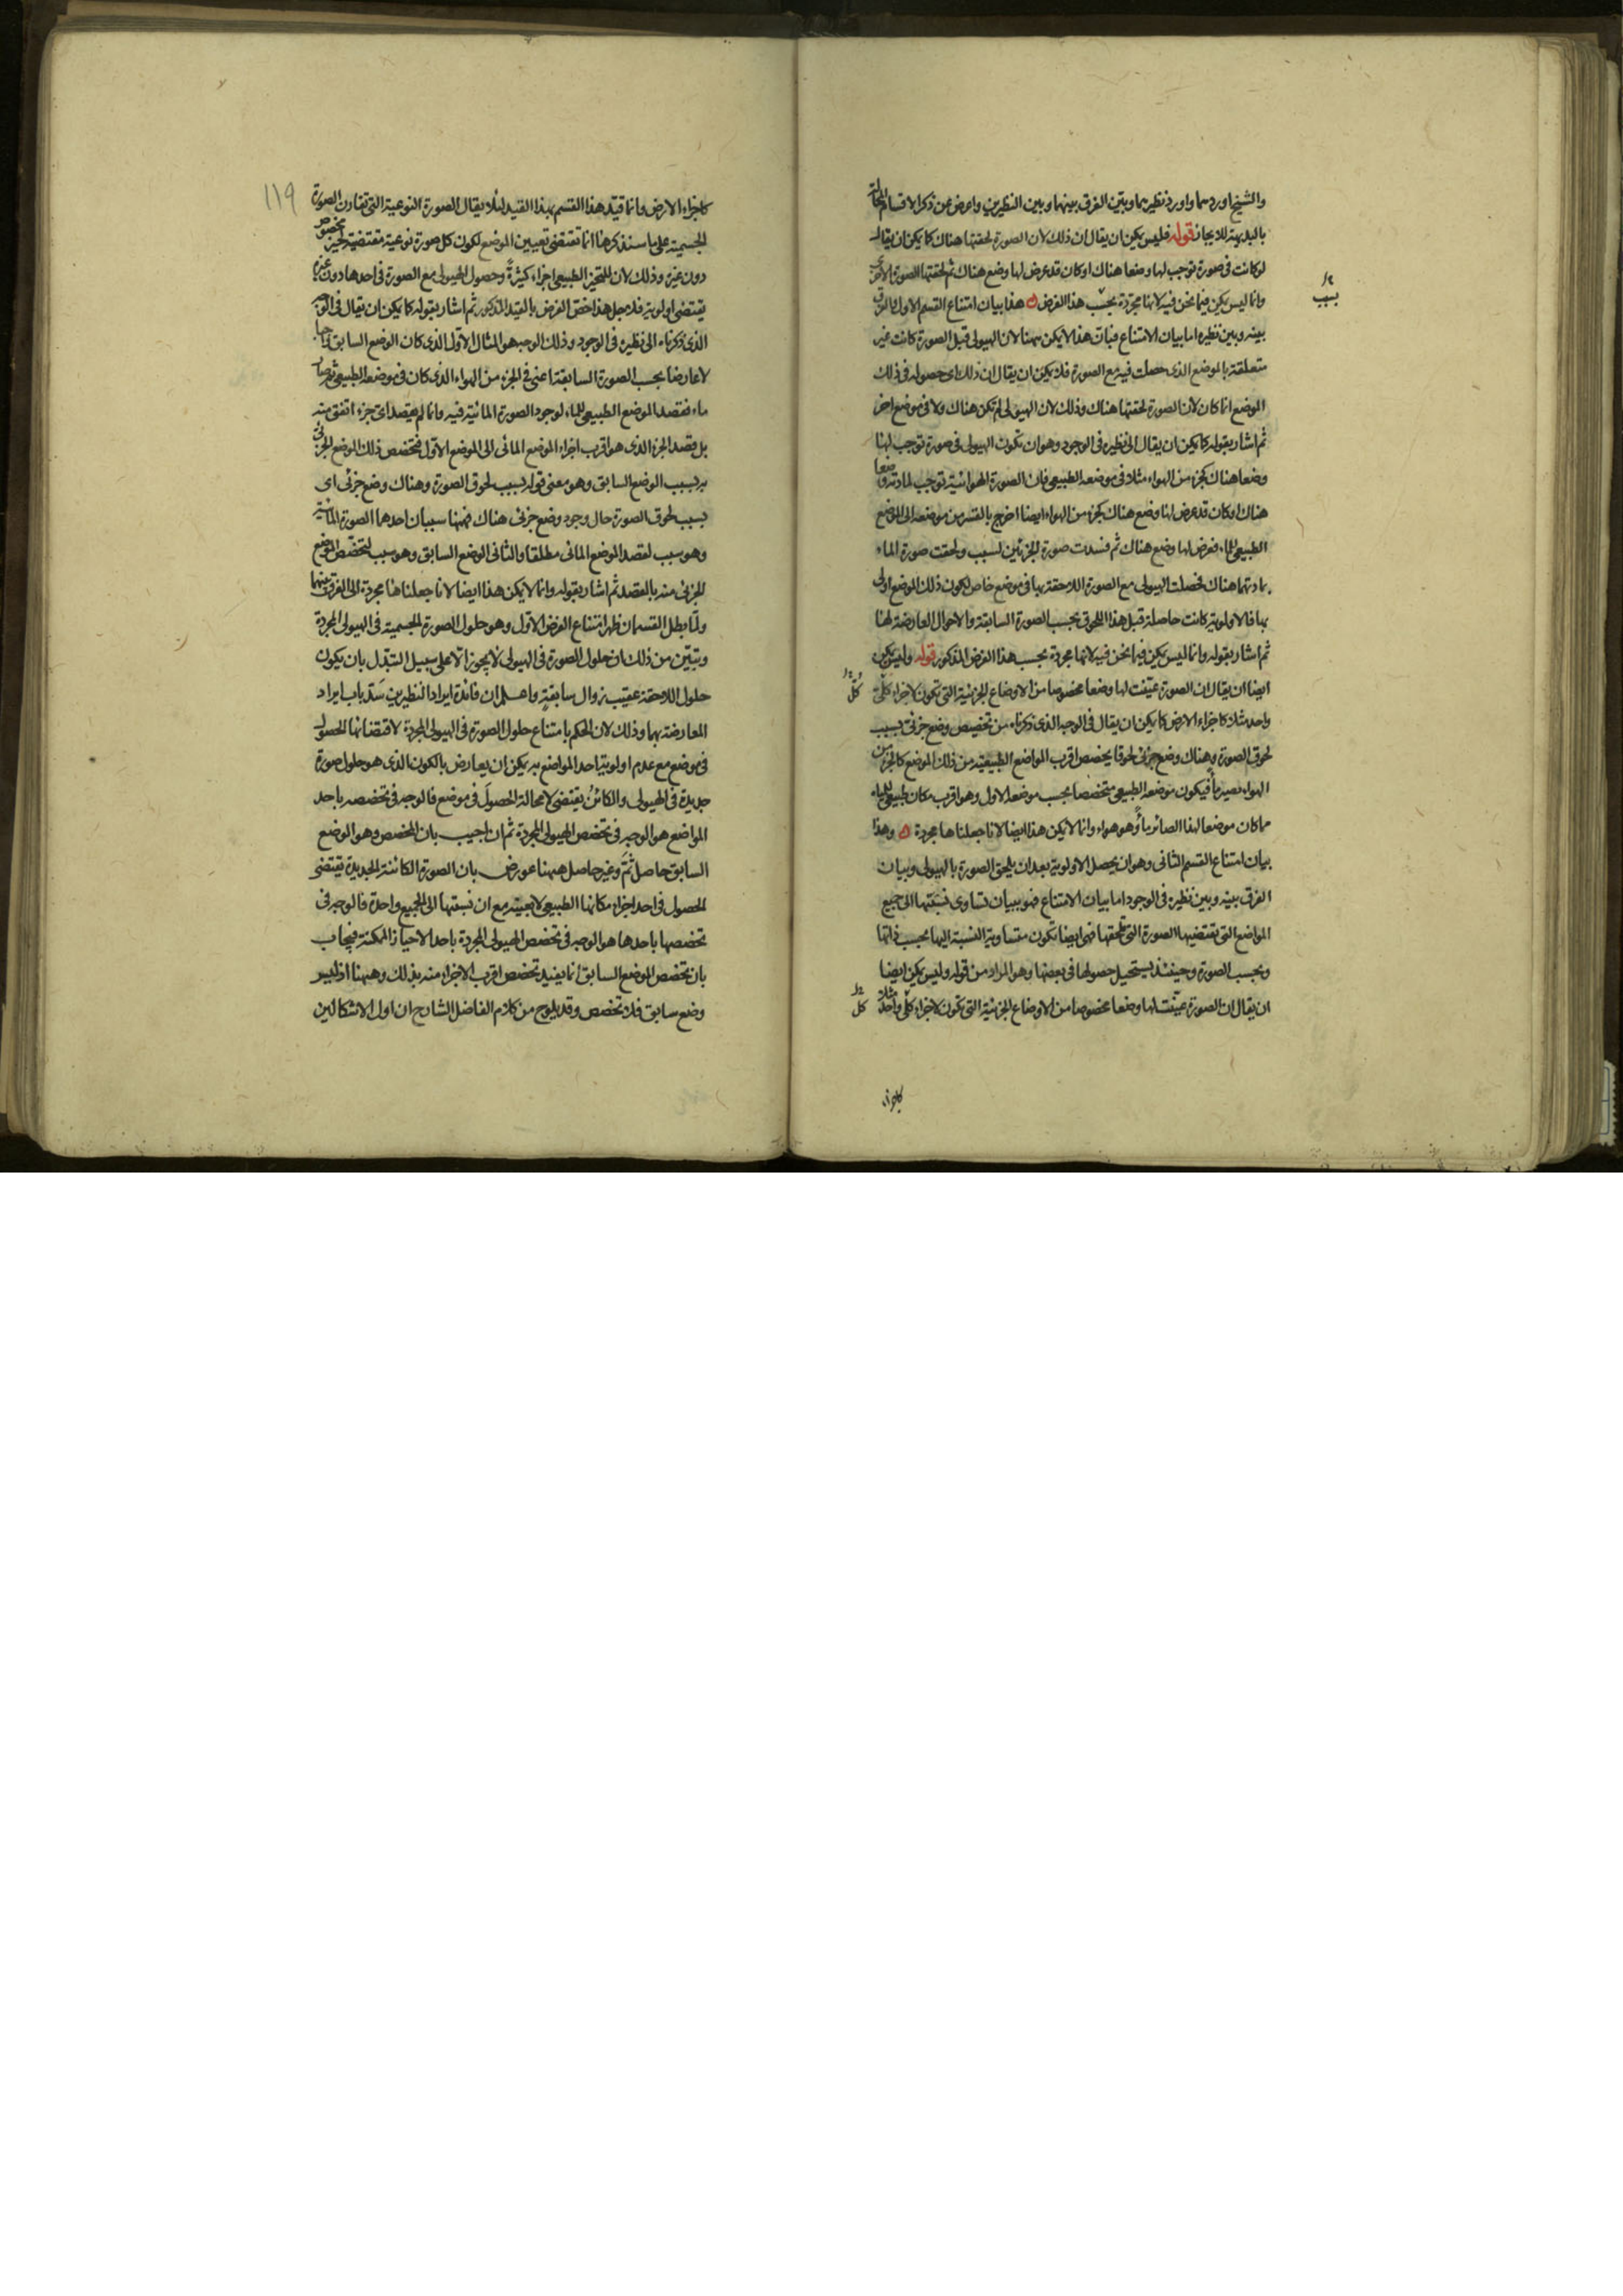 والشيخ اوردهما واورد نظيريهما وبيّن الفرق بينهما وبين النظيرين واعرض عن ذكر الاقسام الحالة
بالبديهة للايجاز قوله فليس يمكن ان يقال ان ذلك لان الصورة لحقتها هناك كما يمكن ان يقال
لو كانت فى صورة توجب لها وضعا هناك او كان قد عرض لها وضع هناك ثم لحقتها الصورة الاخرى
وانما ليس يمكن فيما نحن فيه لانها مجردة بحسب هذا الفرض هذا بيان امتناع القسم الاول والفرق
بينه وبين نظيره اما بيان الامتناع فبان هذا لا يمكن ههنا لان الهيولى قبل الصورة كانت غير
متعلقة بالموضع الذى حصلت فيه مع الصورة فلا يمكن ان يقال ان ذلك اى حصوله فى ذلك
الموضع انما كان لان الصورة لحقتها هناك وذلك لان الهيولى لم تكن هناك ولا فى موضع اخر
ثم اشار بقوله كما يمكن ان يقال الى نظيره فى الوجود وهو ان تكون الهيولى فى صورة توجب لها
وضعا هناك كجزء من الهواء مثلا فى موضعه الطبيعى فان الصورة الهوائية توجب لمادته وضعا
هناك او كان قد عرض لها وضع هناك كجزء من الهواء ايضا اخرج بالقسر من موضعه الى الموضع
الطبيعى للماء فعرض لها وضع هناك ثم فسدت صورة الجزئين لسبب ولحقت صورة الماء
بمادتهما هناك فحصلت الهيولى مع الصورة اللاحقة بها فى موضع خاص لكون ذلك الموضع اولى
بها فالاولوية كانت حاصلة قبل هذا اللحوق بحسب الصورة السابقة والاحوال العارضة لها
ثم اشار بقوله وانما ليس يمكن فيما نحن فيه لانها مجردة بحسب هذا الفرض المذكور قوله وليس يمكن
ايضا ان يقال ان الصورة عيّنت لها وضعا مخصوصا من الاوضاع الجزئية التى تكون لاجزاء كلّى
واحد مثلا كاجزاء الارض كما يمكن ان يقال فى الوجه الذى ذكرناه من تخصيص وضع جزئى بسبب
لحوق الصورة وهناك وضع جزئى لحوقا يخصص اقرب المواضع الطبيعية من ذلك الموضع كالجزء من
الهواء تصير ماءً فيكون موضعه الطبيعى متخصصا بحسب موضعه الاول وهو اقرب مكان طبيعى للماء
مما كان موضعا لهذا الصائر ماءً وهو هواء وانما لا يمكن هذا ايضا لانا جعلناها مجردة وهذا
بيان امتناع القسم الثانى وهو ان يحصل الاولوية بعد ان يلحق الصورة بالهيولى وبيان
الفرق بينه وبين نظيره فى الوجود اما بيان الامتناع فهو ببيان تساوى نسبتها الى جميع
المواضع التى تقتضيها الصورة التى تلحقها فهى ايضا تكون متساوية النسبة اليها بحسب ذاتها
وبحسب الصورة وحينئذ يستحيل حصولها فى بعضها وهو المراد من قوله وليس يمكن ايضا
ان يقال ان الصورة عيّنت لها وضعا مخصوصا من الاوضاع الجزئية التى تكون لاجزاء كلّى واحد مثلا
بسبب
كلّ
كل
كاجزاء
١١٩
كاجزاء الارض وانما قيّد هذا القسم بهذا القيد لئلا يقال الصورة النوعية التى تقارن الصورة
الجسمية على ما سنذكرها انما تقتضى تعيين الموضع لكون كل صورة نوعية مقتضية لحيز مخصوص
دون غيره وذلك لان للتحيز الطبيعى اجزاء كثيرةً وحصول الهيولى مع الصورة فى احدها دون غيره
يقتضى اولوية فلاجل هذا خصّ الفرض بالقيد المذكور ثم اشار بقوله كما يمكن ان يقال فى الوجه
الذى ذكرناه الى نظيره فى الوجود وذلك الوجه هو المثال الاول الذى كان الوضع السابق
لا عارضا بحسب الصورة السابقة اعنى فى الجزء من الهواء الذى كان فى موضعه الطبيعى ثم صار
ماء فقصد الموضع الطبيعى للماء لوجود الصورة المائية فيه وانما لم يقصد اىّ جزء اتفق منه
بل قصد الجزء الذى هو اقرب اجزاء الموضع المائى الى الموضع الاول فتخصص ذلك الموضع الجزئى
به بسبب الوضع السابق وهو معنى قوله بسبب لحوق الصورة وهناك وضع جزئى اى
بسبب لحوق الصورة حال وجود وضع جزئى هناك فههنا سببان احدهما الصورة المائية
وهو سبب لقصد الموضع المائى مطلقا والثانى الوضع السابق وهو سبب لتخصّص الموضع
الجزئى منه بالقصد ثم اشار بقوله وانما لا يمكن هذا ايضا لانا جعلناها مجردة الى الفرق بينهما
ولمّا بطل القسمان ظهر امتناع الفرض الاول وهو حلول الصورة الجسمية فى الهيولى المجردة
وتبيّن من ذلك ان حلول الصورة فى الهيولى لا يجوز الّا على سبيل التبدّل بان يكون
حلول اللاحقة عقيب زوال سابقةٍ واعلم ان فائدة ايراد النظيرين سَدّ باب ايراد
المعارضة بهما وذلك لان الحكم بامتناع حلول الصورة فى الهيولى المجردة لاقتضائها الحصول
فى موضع مع عدم اولوية احد المواضع به يمكن ان يعارض بالكون الذى هو حلول صورة
جديدة فى الهيولى والكائنُ يقتضى لا محالة الحصولَ فى موضع فالوجه فى تخصصه باحد
المواضع هو الوجه فى تخصص الهيولى المجردة ثم ان اجيب بان المخصص وهو الوضع
السابق حاصل ثَمّ وغير حاصل ههنا عورض بان الصورة الكائنة الجديدة تقتضى
الحصول فى احد اجزاء مكانها الطبيعى لا بعينه مع ان نسبتها الى الجميع واحدة فالوجه فى
تخصصها باحدها هو الوجه فى تخصص الهيولى المجردة باحد الاحياز الممكنة فيجاب
بان تخصص الموضع السابق انما يفيد تخصص اقرب الاجزاء منه بذلك وههنا اذ ليس
وضع سابق فلا تخصص وقد يلوح من كلام الفاضل الشارح ان اول الاشكالين